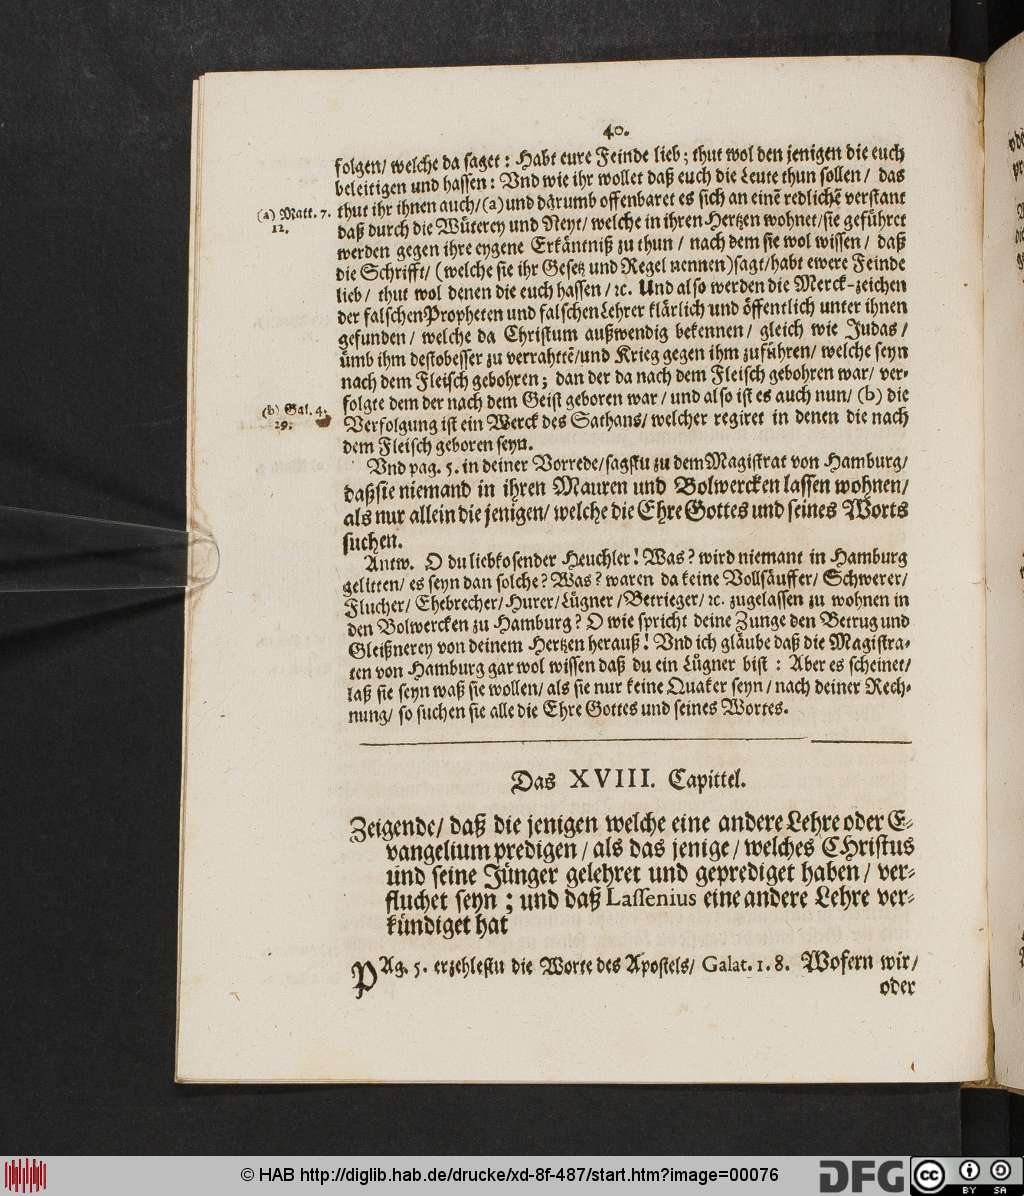 40.
folgen/ welche da saget : Habt eure Feinde lieb ; thut wol den jenigen die euch
beleitigen und hassen : Vnd wie ihr wollet daß euch die Leute thun sollen / das
(a) Matt. 7. thut ihr ihnen auch/ (a) und darumb offenbaret es sich an einē redlichē verstant
12.
daß durch die Wüterey und Neyt/ welche in ihren Hertzen wohnet/sie geführet
werden gegen ihre eygene Erkäntniß zu thun / nach dem sie wol wissen / daß
die Schrifft/ (welche sie ihr Gesetz und Regel nennen) sagt/habt ewere Feinde
lieb / thut wol denen die euch hassen / ꝛc. Und also werden die Merck-zeichen
der falschen Propheten und falschen Lehrer klärlich und öffentlich unter ihnen
gefunden / welche da Christum außwendig bekennen / gleich wie Judas /
ümb ihm destobesser zu verrahttē/und Krieg gegen ihm zuführen/ welche seyn
nach dem Fleisch gebohren ; dan der da nach dem Fleisch gebohren war / ver-
folgte dem der nach dem Geist geboren war / und also ist es auch nun/ (b) die
(b) Gal. 4.
29.
Verfolgung ist ein Werck des Sathans/ welcher regiret in denen die nach
dem Fleisch geboren seyn.
Vnd pag. 5. in deiner Vorrede/sagstu zu dem Magistrat von Hamburg/
daß sie niemand in ihren Mauren und Bolwercken lassen wohnen/
als nur allein die jenigen/ welche die Ehre Gottes und seines Worts
suchen.
Antw. O du liebkosender Heuchler! Was? wird niemant in Hamburg
gelitten/ es seyn dan solche? Was? waren da keine Vollsäuffer/ Schwerer/
Flucher/ Ehebrecher/ Hurer/ Lügner /Betrieger/ ꝛc. zugelassen zu wohnen in
den Bolwercken zu Hamburg? O wie spricht deine Zunge den Betrug und
Gleißnerey von deinem Hertzen herauß! Vnd ich gläube daß die Magistra-
ten von Hamburg gar wol wissen daß du ein Lügner bist : Aber es scheinet/
laß sie seyn waß sie wollen/ als sie nur keine Quaker seyn / nach deiner Rech-
nung/ so suchen sie alle die Ehre Gottes und seines Wortes.
Das XVIII. Capittel.
Zeigende/ daß die jenigen welche eine andere Lehre oder E-
vangelium predigen / als das jenige / welches CHristus
und seine Jünger gelehret und geprediget haben / ver-
fluchet seyn ; und daß Lassenius eine andere Lehre ver-
kündiget hat
PAg. 5. erzehlestu die Worte des Apostels/ Galat. 1. 8. Wofern wir/
oder
© HAB http://diglib.hab.de/drucke/xd-8f-487/start.htm?image=00076
DFG
cc
BY SA